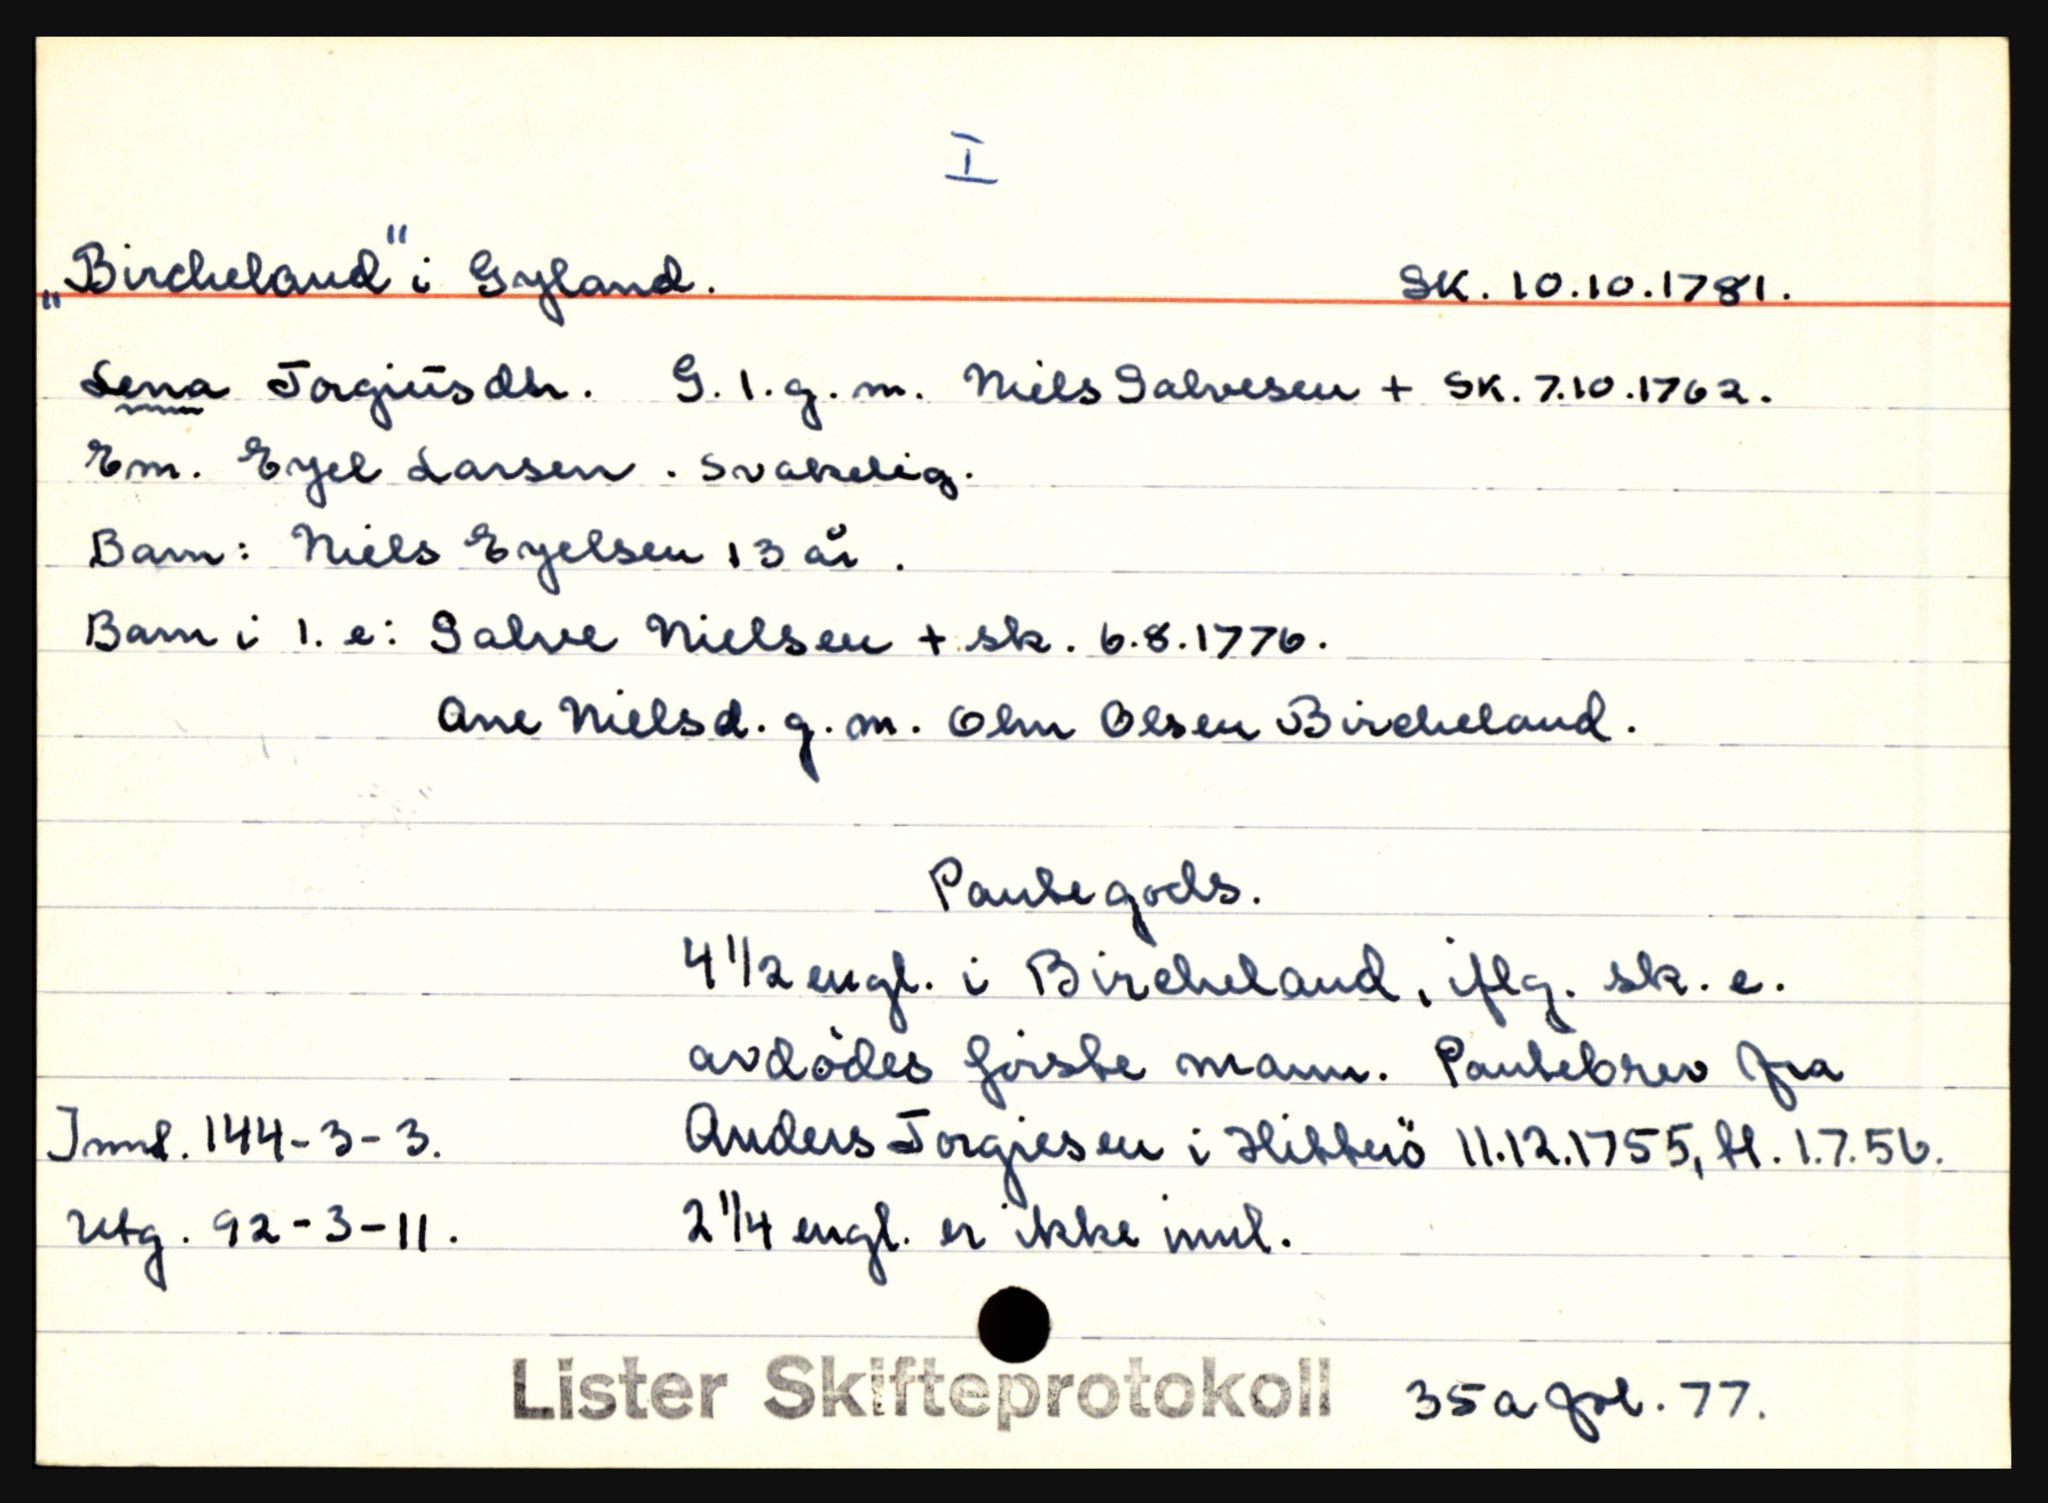 I
„Bircheland" i Gyland. SK. 10.10.1781.
Lena Torgiusdtr. G. 1. g. m. Niels Salvesen + SK. 7.10.1762.
Em. Eyel Larsen. Svakelig.
Barn: Niels Eyelsen 13 år.
Barn i 1. e: Salve Nielsen + sk. 6.8.1776.
Ane Nielsd. g. m. Olm Olsen Bircheland.
Pantegods.
4 1/2 engl. i Bircheland, iflg. sk. e.
avdödes förste mann. Pantebrev fra
Innt. 144-3-3. Anders Torgiesen i Hitterö 11.12.1755, tl. 1.7.56.
Utg. 92-3-11. 2 1/4 engl. er ikke innl.
Lister Skifteprotokoll 35a fol. 77.